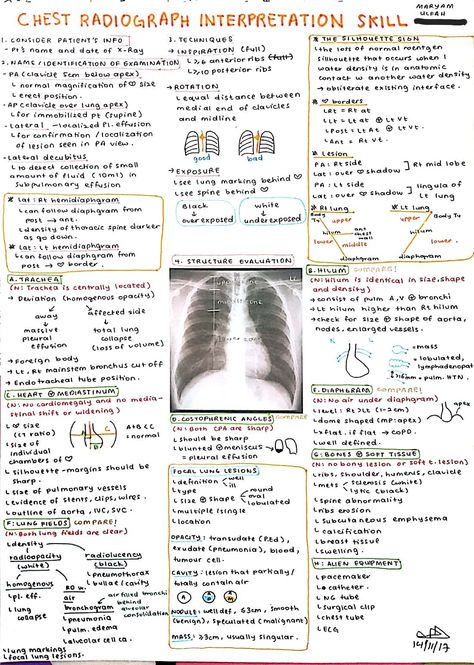 CHEST RADIOGRAPH INTERPRETATION SKILL
MARYAM
1. CONSIDER PATIENT'S INFO
- Pt's name and date of X-Ray
2. NAME/IDENTIFICATION OF EXAMINATION
- PA (clavicle 5cm below apex)
↳ normal magnification of ♡ size
↳ erect position.
- AP (clavicle over lung apex)
↳ for immobilized pt (supine)
- Lateral - localized Pl. effusion
↳ for confirmation / localization
of lesion seen in PA view.
- Lateral decubitus
↳ to detect collection of small
amount of fluid (10ml) in
subpulmonary effusion
* Lat: Rt hemidiaphgram
↳ can follow diaphgram from
post → ant.
↳ density of thoracic spine darker
as go down.
* Lat: Lt hemidiaphgram
↳ can follow diaphgram from
post → ♡ border.
A. TRACHEA
(N: Trachea is centrally located)
→ Deviation (homogenous opacity)
away
affected side
massive
pleural
effusion
total lung
collapse
(loss of volume)
→ Foreign body
→ Lt, Rt mainstem bronchus cut off
→ Endotracheal tube position.
C. HEART ⊕ MEDIASTINUM
(N: No cardiomegaly and no media-
stinal shift or widening)
↳ ♡ size
(CT ratio)
↳ size of
individual
chambers of ♡
A+B<C
= normal
↳ silhouette - margins should be
sharp.
↳ size of pulmonary vessels
↳ evidence of stents, clips, wires.
↳ outline of aorta, IVC, SVC.
F: LUNG FIELDS COMPARE!
(N: Both lung fields are clear)
↳ density
radioopacity
(white)
radiolucency
(black)
↳ pneumothorax
↳ bullae / cavity
homogenous
↳ pl. eff.
↳ lung
collapse
air
bronchogram
↳ pneumonia
↳ pulm. edema
↳ alveolar cell ca.
air filled bronchi
behind
alveolar
consolidation
↳ lung markings
↳ focal lung lesions.
3. TECHNIQUES
→ INSPIRATION (full)
↳ >6 anterior ribs
↳ >10 posterior ribs
→ ROTATION
↳ equal distance between
medial end of clavicles
and midline
good
bad
→ EXPOSURE
↳ see lung marking behind ♡
↳ see spine behind ♡
Black
↳ overexposed
white
↳ underexposed
4. STRUCTURE EVALUATION
D. COSTOPHRENIC ANGLES COMPARE
(N: Both CPA are sharp)
↳ should be sharp
↳ blunted ⊕ meniscus
= pleural effusion
FOCAL LUNG LESIONS.
↳ definition well
ill
↳ type
↳ size ⊕ shape round
oval
lobulated
↳ multiple/single
↳ location
OPACITY: transudate (PEd),
exudate (pneumonia), blood,
tumour cell.
CAVITY: lesion that partially/
totally contain air
NODULE: well def, <3cm, smooth
(benign), speculated (malignant)
MASS: ≥3cm, usually singular.
* THE SILHOUETTE SIGN
↳ the loss of normal roentgen
silhouette that occurs when 1
water density is in anatomic
contact w another water density
→ obliterate existing interface.
* ♡ borders
↳ Rt = Rt at
↳ Lt = Lt at ⊕ Lt Vt
↳ Post = Lt At ⊕ Lt Vt
↳ Ant = Rt Vt.
* Lesion
PA: Rt side
Lat: over ♡ shadow
Rt mid lobe
PA: Lt side
Lat: over ♡ shadow
lingula of
Lt lung
* Rt lung
* Lt lung
upper
hilum
lower
middle
diaphragm
ant
chest
wall
upper
hilum
lower
diaphragm
B: HILUM COMPARE!
(N: Hilum is identical in size, shape
and density)
→ consist of pulm A, V ⊕ bronchi
→ Lt hilum higher than Rt hilum
→ check for size ⊕ shape of aorta,
nodes, enlarged vessels.
= mass
= lobulated,
lymphadenopat
>16mm = pulm. HTN
E. DIAPHRAGM COMPARE!
(N: No air under diaphragm)
↳ level: Rt > Lt (1-2cm)
↳ dome shaped (MP: apex)
↳ flat. if flat → COPD.
↳ well defined.
apex
G: BONES ⊕ SOFT TISSUE
(N: no bony lesion or soft t. lesion)
↳ ribs, shoulder, humerus, clavicle
↳ mets sclerosis (white)
lytic (black)
↳ spine abnormality
↳ ribs erosion
↳ subcutaneous emphysema
↳ calcification
↳ breast tissue
↳ swelling.
H: ALIEN EQUIPMENT
↳ pacemaker
↳ catheter.
↳ NG tube
↳ surgical clip
↳ chest tube
↳ ECG
14/11/17